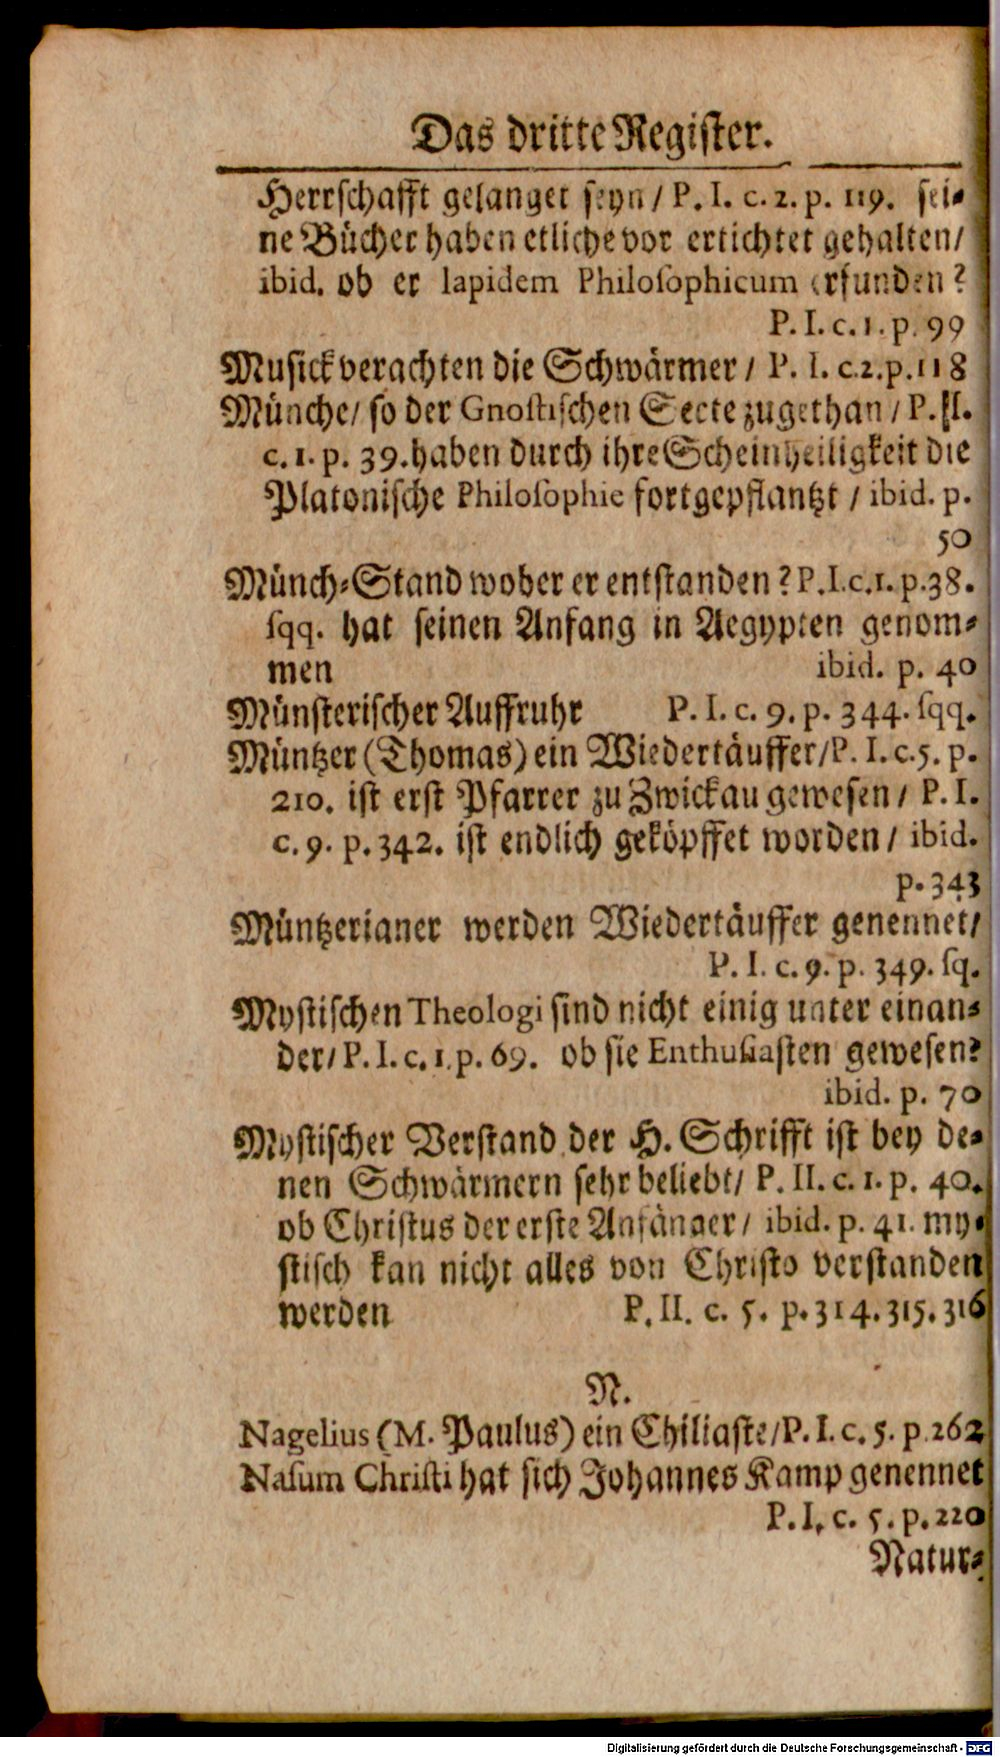 Das dritte Register.
Herrschafft gelanget seyn / P. I. c. 2. p. 119. sei-
ne Bücher haben etliche vor ertichtet gehalten /
ibid. ob er lapidem Philosophicum erfunden ?
P. I. c. 1. p. 99
Musick verachten die Schwärmer / P. I. c. 2. p. 118
Münche / so der Gnostischen Secte zugethan / P. II.
c. 1. p. 39. haben durch ihre Scheinheiligkeit die
Platonische Philosophie fortgepflantzt / ibid. p.
50
Münch-Stand woher er entstanden ? P. I. c. 1. p. 38.
sqq. hat seinen Anfang in Aegypten genom-
men ibid. p. 40
Münsterischer Auffruhr P. I. c. 9. p. 344. sqq.
Müntzer (Thomas) ein Wiedertäuffer / P. I. c. 5. p.
210. ist erst Pfarrer zu Zwickau gewesen / P. I.
c. 9. p. 342. ist endlich geköpffet worden / ibid.
p. 343
Müntzerianer werden Wiedertäuffer genennet /
P. I. c. 9. p. 349. sq.
Mystischen Theologi sind nicht einig unter einan-
der / P. I. c. 1. p. 69. ob sie Enthusiasten gewesen?
ibid. p. 70
Mystischer Verstand der H. Schrifft ist bey de-
nen Schwärmern sehr beliebt / P. II. c. 1. p. 40.
ob Christus der erste Anfänger / ibid. p. 41. my-
stisch kan nicht alles von Christo verstanden
werden P. II. c. 5. p. 314. 315. 316
N.
Nagelius (M. Paulus) ein Chiliaste / P. I. c. 5. p. 262
Nasum Christi hat sich Johannes Kamp genennet
P. I. c. 5. p. 220
Natur-
Digitalisierung gefördert durch die Deutsche Forschungsgemeinschaft - DFG